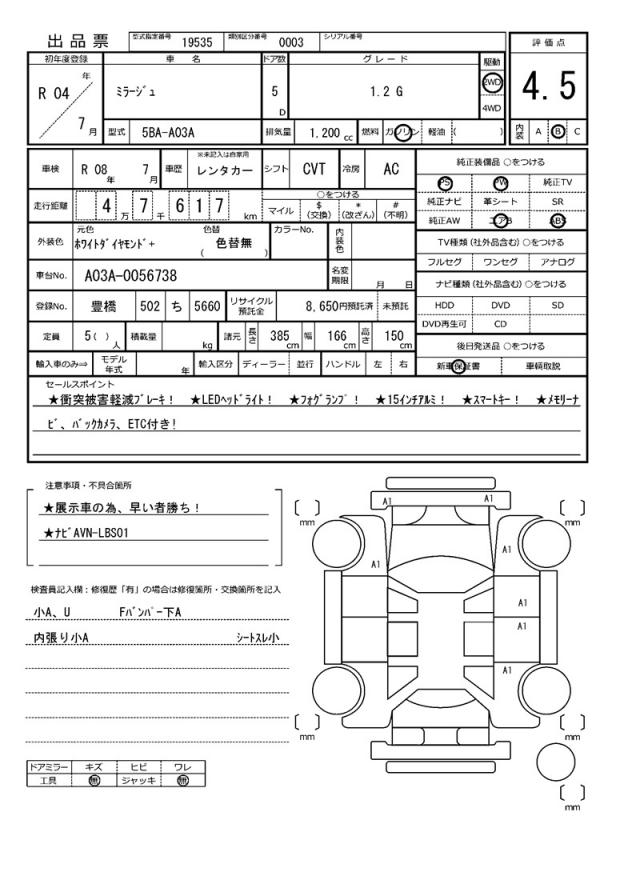 出品票 型式指定番号 19535 類別区分番号 0003 シリアル番号
初年度登録 車名 ドア数 グレード 駆動 評価点
R 04 年 7 月 ﾐﾗｰｼﾞｭ 5 D 1.2 G 2WD 4WD 4.5
型式 5BA-A03A 排気量 1.200 cc 燃料 ガソリン 軽油 ( ) 内装 A B C
車検 R 08 年 7 月 車歴 ※未記入は自家用 レンタカー シフト CVT 冷房 AC 純正装備品 ○をつける
PS PW 純正TV
走行距離 4 万 7 千 6 1 7 km ○をつける
マイル $ (交換) * (改ざん) # (不明) 純正ナビ 革シート SR
純正AW エアB ABS
外装色 元色 ﾎﾜｲﾄﾀﾞｲﾔﾓﾝﾄﾞ+ 色替 ( 色替無 ) カラーNo. 内装色
TV種類 (社外品含む) ○をつける
フルセグ ワンセグ アナログ
車台No. A03A-0056738 名変期限 月 日 ナビ種類 (社外品含む) ○をつける
登録No. 豊橋 502 ち 5660 リサイクル預託金 8,650円預託済 未預託 HDD DVD SD
DVD再生可 CD
定員 5( ) 人 積載量 kg 諸元 長さ 385 cm 幅 166 cm 高さ 150 cm 後日発送品 ○をつける
輸入車のみ⇒ モデル年式 年 輸入区分 ディーラー 並行 ハンドル 左 右 新車保証書 車輌取説
セールスポイント
★衝突被害軽減ﾌﾞﾚｰｷ！ ★LEDﾍｯﾄﾞﾗｲﾄ！ ★ﾌｫｸﾞﾗﾝﾌﾟ！ ★15ｲﾝﾁｱﾙﾐ！ ★ｽﾏｰﾄｷｰ！ ★ﾒﾓﾘｰﾅ
ﾋﾞ、ﾊﾞｯｸｶﾒﾗ、ETC付き！
注意事項・不具合箇所
★展示車の為、早い者勝ち！
★ﾅﾋﾞAVN-LBS01
検査員記入欄：修復歴「有」の場合は修復箇所・交換箇所を記入
小A、U Fﾊﾞﾝﾊﾟｰ下A
内張り小A ｼｰﾄｽﾚ小
ドアミラー キズ ヒビ ワレ
工具 無 ジャッキ 無
A1 A1
mm mm
A1 A1
A1
A1
mm mm
mm